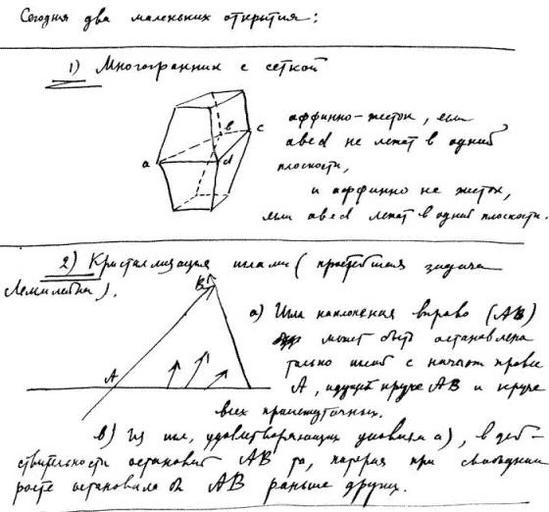 Сегодня два маленьких открытия:
1) Многогранник с сеткой
a b c d
аффинно-жесток, если
abcd не лежат в одной
плоскости,
и аффинно не жесток,
если abcd лежат в одной плоскости.
2) Кристаллизация иглами (простейшая задача
).
A B
а) Игла наклонения вправо (AB)
может быть остановлена
только иглой с началом правее
A, идущей круче AB и круче
всех промежуточных.
в) Из игл, удовлетворяющих условиям а), в дей-
ствительности остановит AB та, которая при свободном
росте остановила бы AB раньше других.